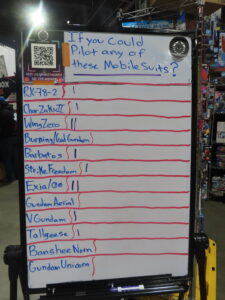 If you Could
Pilot any of
these Mobile Suits?
RX-78-2 I
Char Zaku II I
Wing Zero II
Burning/God Gundam
Barbatos I
Strike Freedom I
Exia/00 II
Gundam Aerial
V Gundam I
Tallgeese I
Banshee Norn
Gundam Unicorn